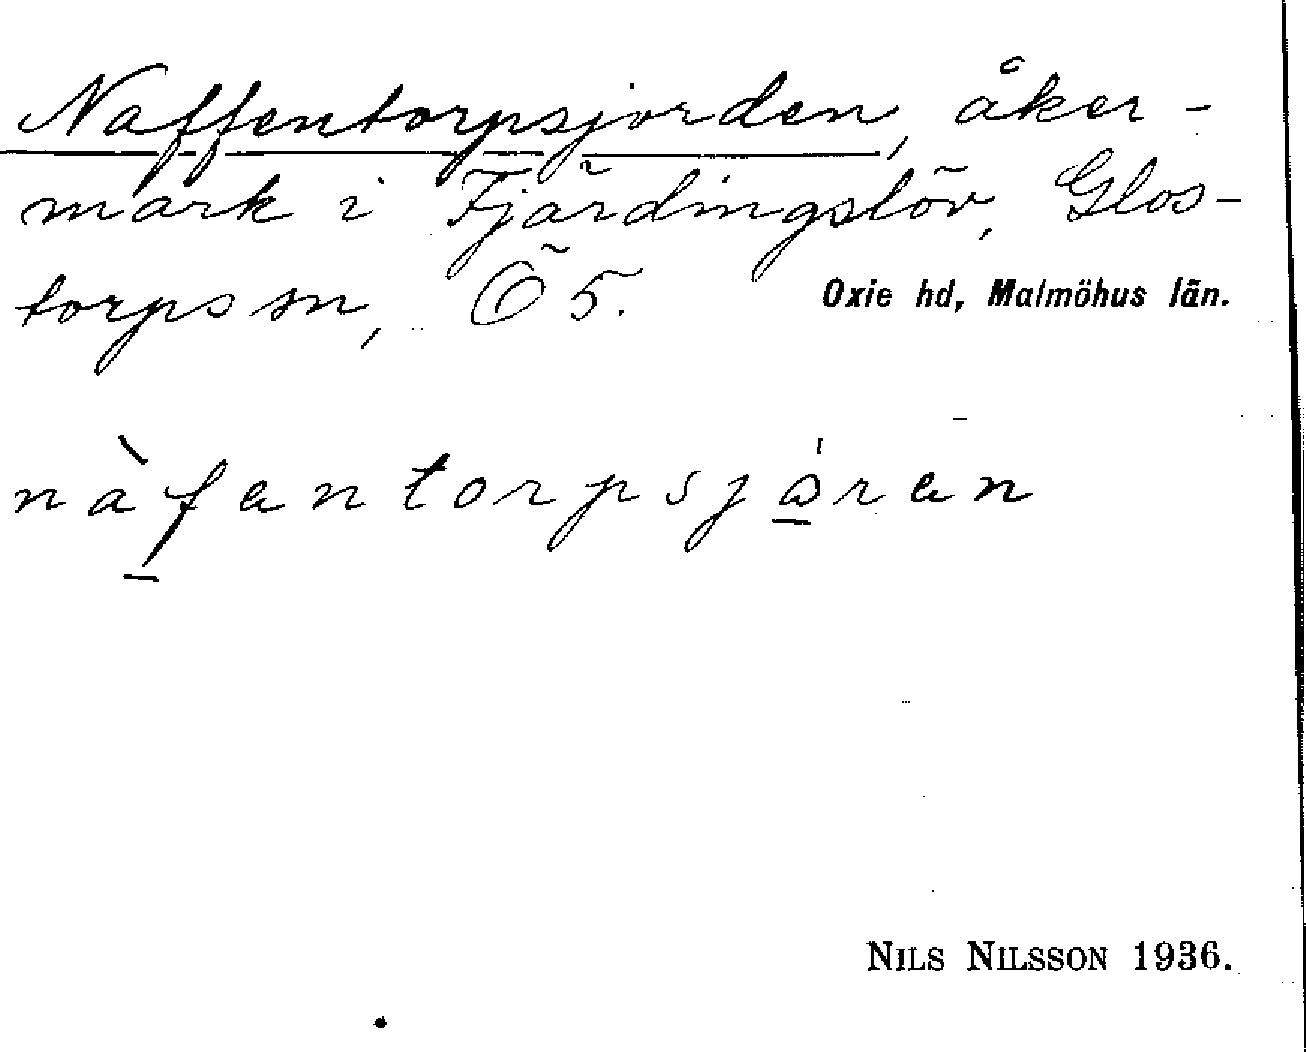 Naffentorpsjorden, åker-
mark i Fjärdingslöv, Glos-
torps sn, Ö 5. Oxie hd, Malmöhus län.
nàfantorpsjȧran
NILS NILSSON 1936.